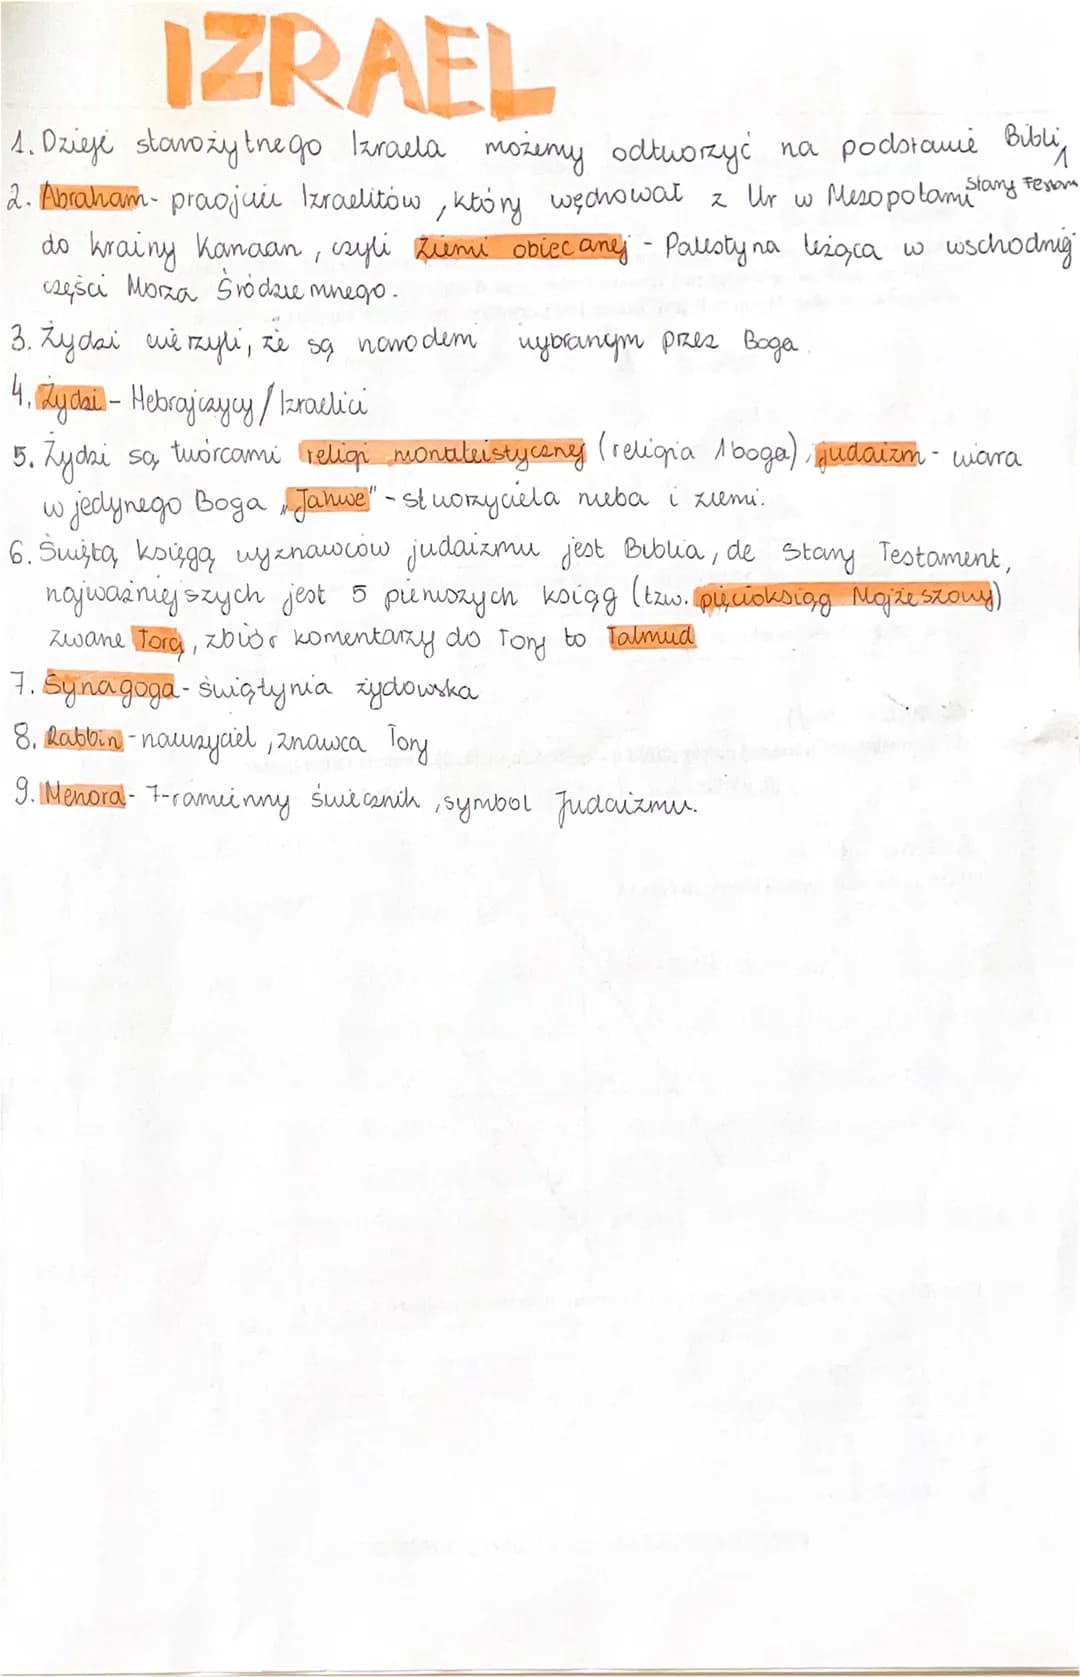 IZRAEL
1. Dzieje starożytnego Izraela możemy odtworzyć na podstawie Bibli,
Stary Testam
2. Abraham - praojciec Izraelitów, który wędrował z Ur w Mezopotami
do krainy Kanaan, czyli Ziemi obiecanej - Palestyna leżąca w wschodniej
części Morza Śródziemnego.
3. Żydzi wierzyli, że są narodem wybranym przez Boga.
4. Żydzi - Hebrajczycy / Izraelici
5. Żydzi są twórcami religi monoteistycznej (religia 1 boga), judaizm - wiara
w jedynego Boga „Jahwe" - stworzyciela nieba i ziemi.
6. Świętą księgą wyznawców judaizmu jest Biblia, ale Stary Testament,
najważniejszych jest 5 pierwszych ksiąg (tzw. pięcioksiąg Mojżeszowy)
zwane Torą, zbiór komentarzy do Tory to Talmud
7. Synagoga - świątynia żydowska
8. Rabbin - nauczyciel, znawca Tory
9. Menora - 7-ramienny świecznik, symbol Judaizmu.